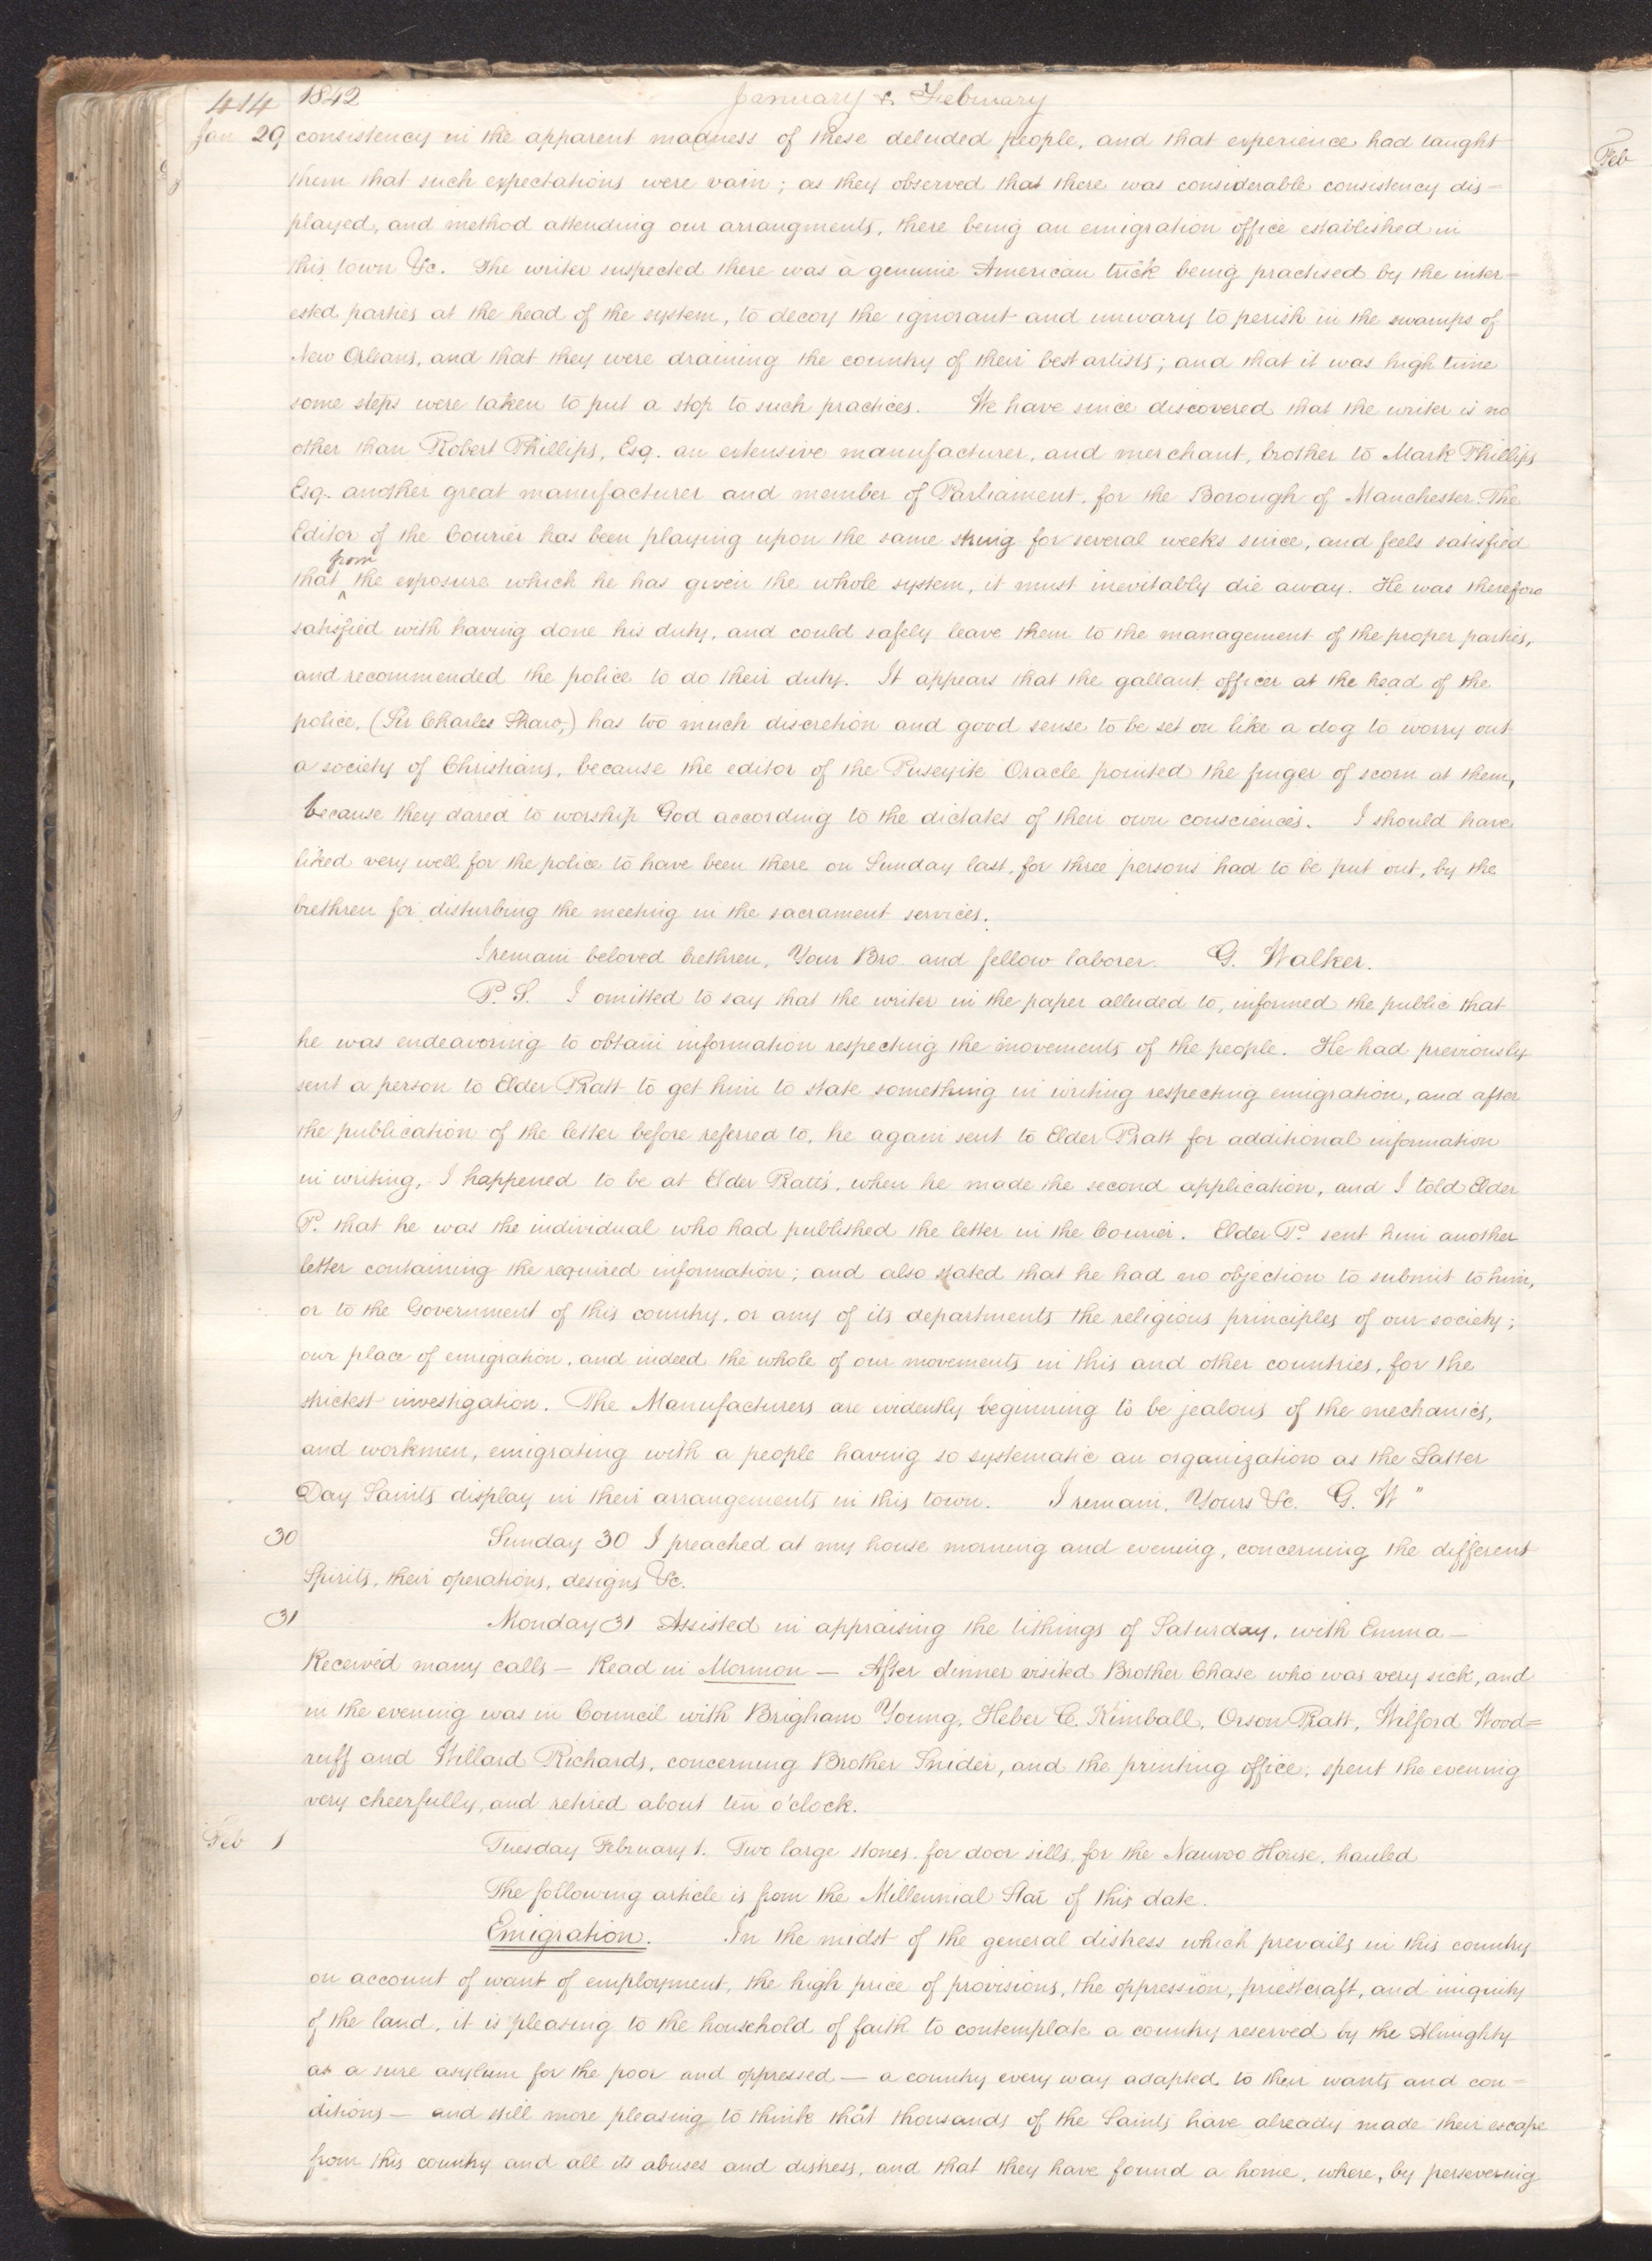 414 1842 January & February
Jan 29 consistency in the apparent madness of these deluded people, and that experience had taught
them that such expectations were vain; as they observed that there was considerable consistency dis-
played, and method attending our arrangments, there being an emigration office established in
this town &c. The writer suspected there was a genuine American trick being practised by the inter-
ested parties at the head of the system, to decoy the ignorant and unwary to perish in the swamps of
New Orleans, and that they were draining the country of their best artists; and that it was high time
some steps were taken to put a stop to such practices. We have since discovered that the writer is no
other than Robert Phillips, Esq. an extensive manufacturer, and merchant, brother to Mark Phillips
Esq. another great manufacturer and member of Parliament, for the Borough of Manchester. The
Editor of the Courier has been playing upon the same string for several weeks since, and feels satisfied
that ^from the exposure which he has given the whole system, it must inevitably die away. He was therefore
satisfied with having done his duty, and could safely leave them to the management of the proper parties,
and recommended the police to do their duty. It appears that the gallant officer at the head of the
police, (Sir Charles Shaw,) has too much discretion and good sense to be set on like a dog to worry out
a society of Christians, because the editor of the Puseyite Oracle pointed the finger of scorn at them,
because they dared to worship God according to the dictates of their own consciences. I should have
liked very well for the police to have been there on Sunday last, for three persons had to be put out, by the
brethren for disturbing the meeting in the sacrament services.
I remain beloved brethren, Your Bro. and fellow laborer. G. Walker.
P.S. I omitted to say that the writer in the paper alluded to, informed the public that
he was endeavoring to obtain information respecting the movements of the people. He had previously
sent a person to Elder Pratt to get him to state something in writing respecting emigration, and after
the publication of the letter before referred to, he again sent to Elder Pratt for additional information
in writing, I happened to be at Elder Pratt's, when he made the second application, and I told Elder
P. that he was the individual who had published the letter in the Courier. Elder P. sent him another
letter containing the required information; and also stated that he had no objection to submit to him,
or to the Government of this country, or any of its departments the religious principles of our society;
our place of emigration, and indeed the whole of our movements in this and other countries, for the
strictest investigation. The Manufacturers are evidently beginning to be jealous of the mechanics,
and workmen, emigrating with a people having so systematic an organization as the Latter
Day Saints display in their arrangements in this town. I remain, Yours &c. G. W"
30 Sunday 30 I preached at my house morning and evening, concerning the different
Spirits, their operations, designs &c.
31 Monday 31 Assisted in appraising the tithings of Saturday, with Emma —
Received many calls — Read in Mormon — After dinner visited Brother Chase who was very sick, and
in the evening was in Council with Brigham Young, Heber C. Kimball, Orson Pratt, Wilford Wood=
ruff and Willard Richards, concerning Brother Snider, and the printing office; spent the evening
very cheerfully, and retired about ten o'clock.
Feb 1 Tuesday February 1. Two large stones for door sills, for the Nauvoo House, hauled
The following article is from the Millennial Star of this date.
Emigration. In the midst of the general distress which prevails in this country
on account of want of employment, the high price of provisions, the oppression, priestcraft, and iniquity
of the land, it is pleasing to the household of faith to contemplate a country reserved by the Almighty
as a sure asylum for the poor and oppressed — a country every way adapted to their wants and con-
ditions — and still more pleasing to think that thousands of the Saints have already made their escape
from this country and all its abuses and distress, and that they have found a home, where, by persevering
Feb